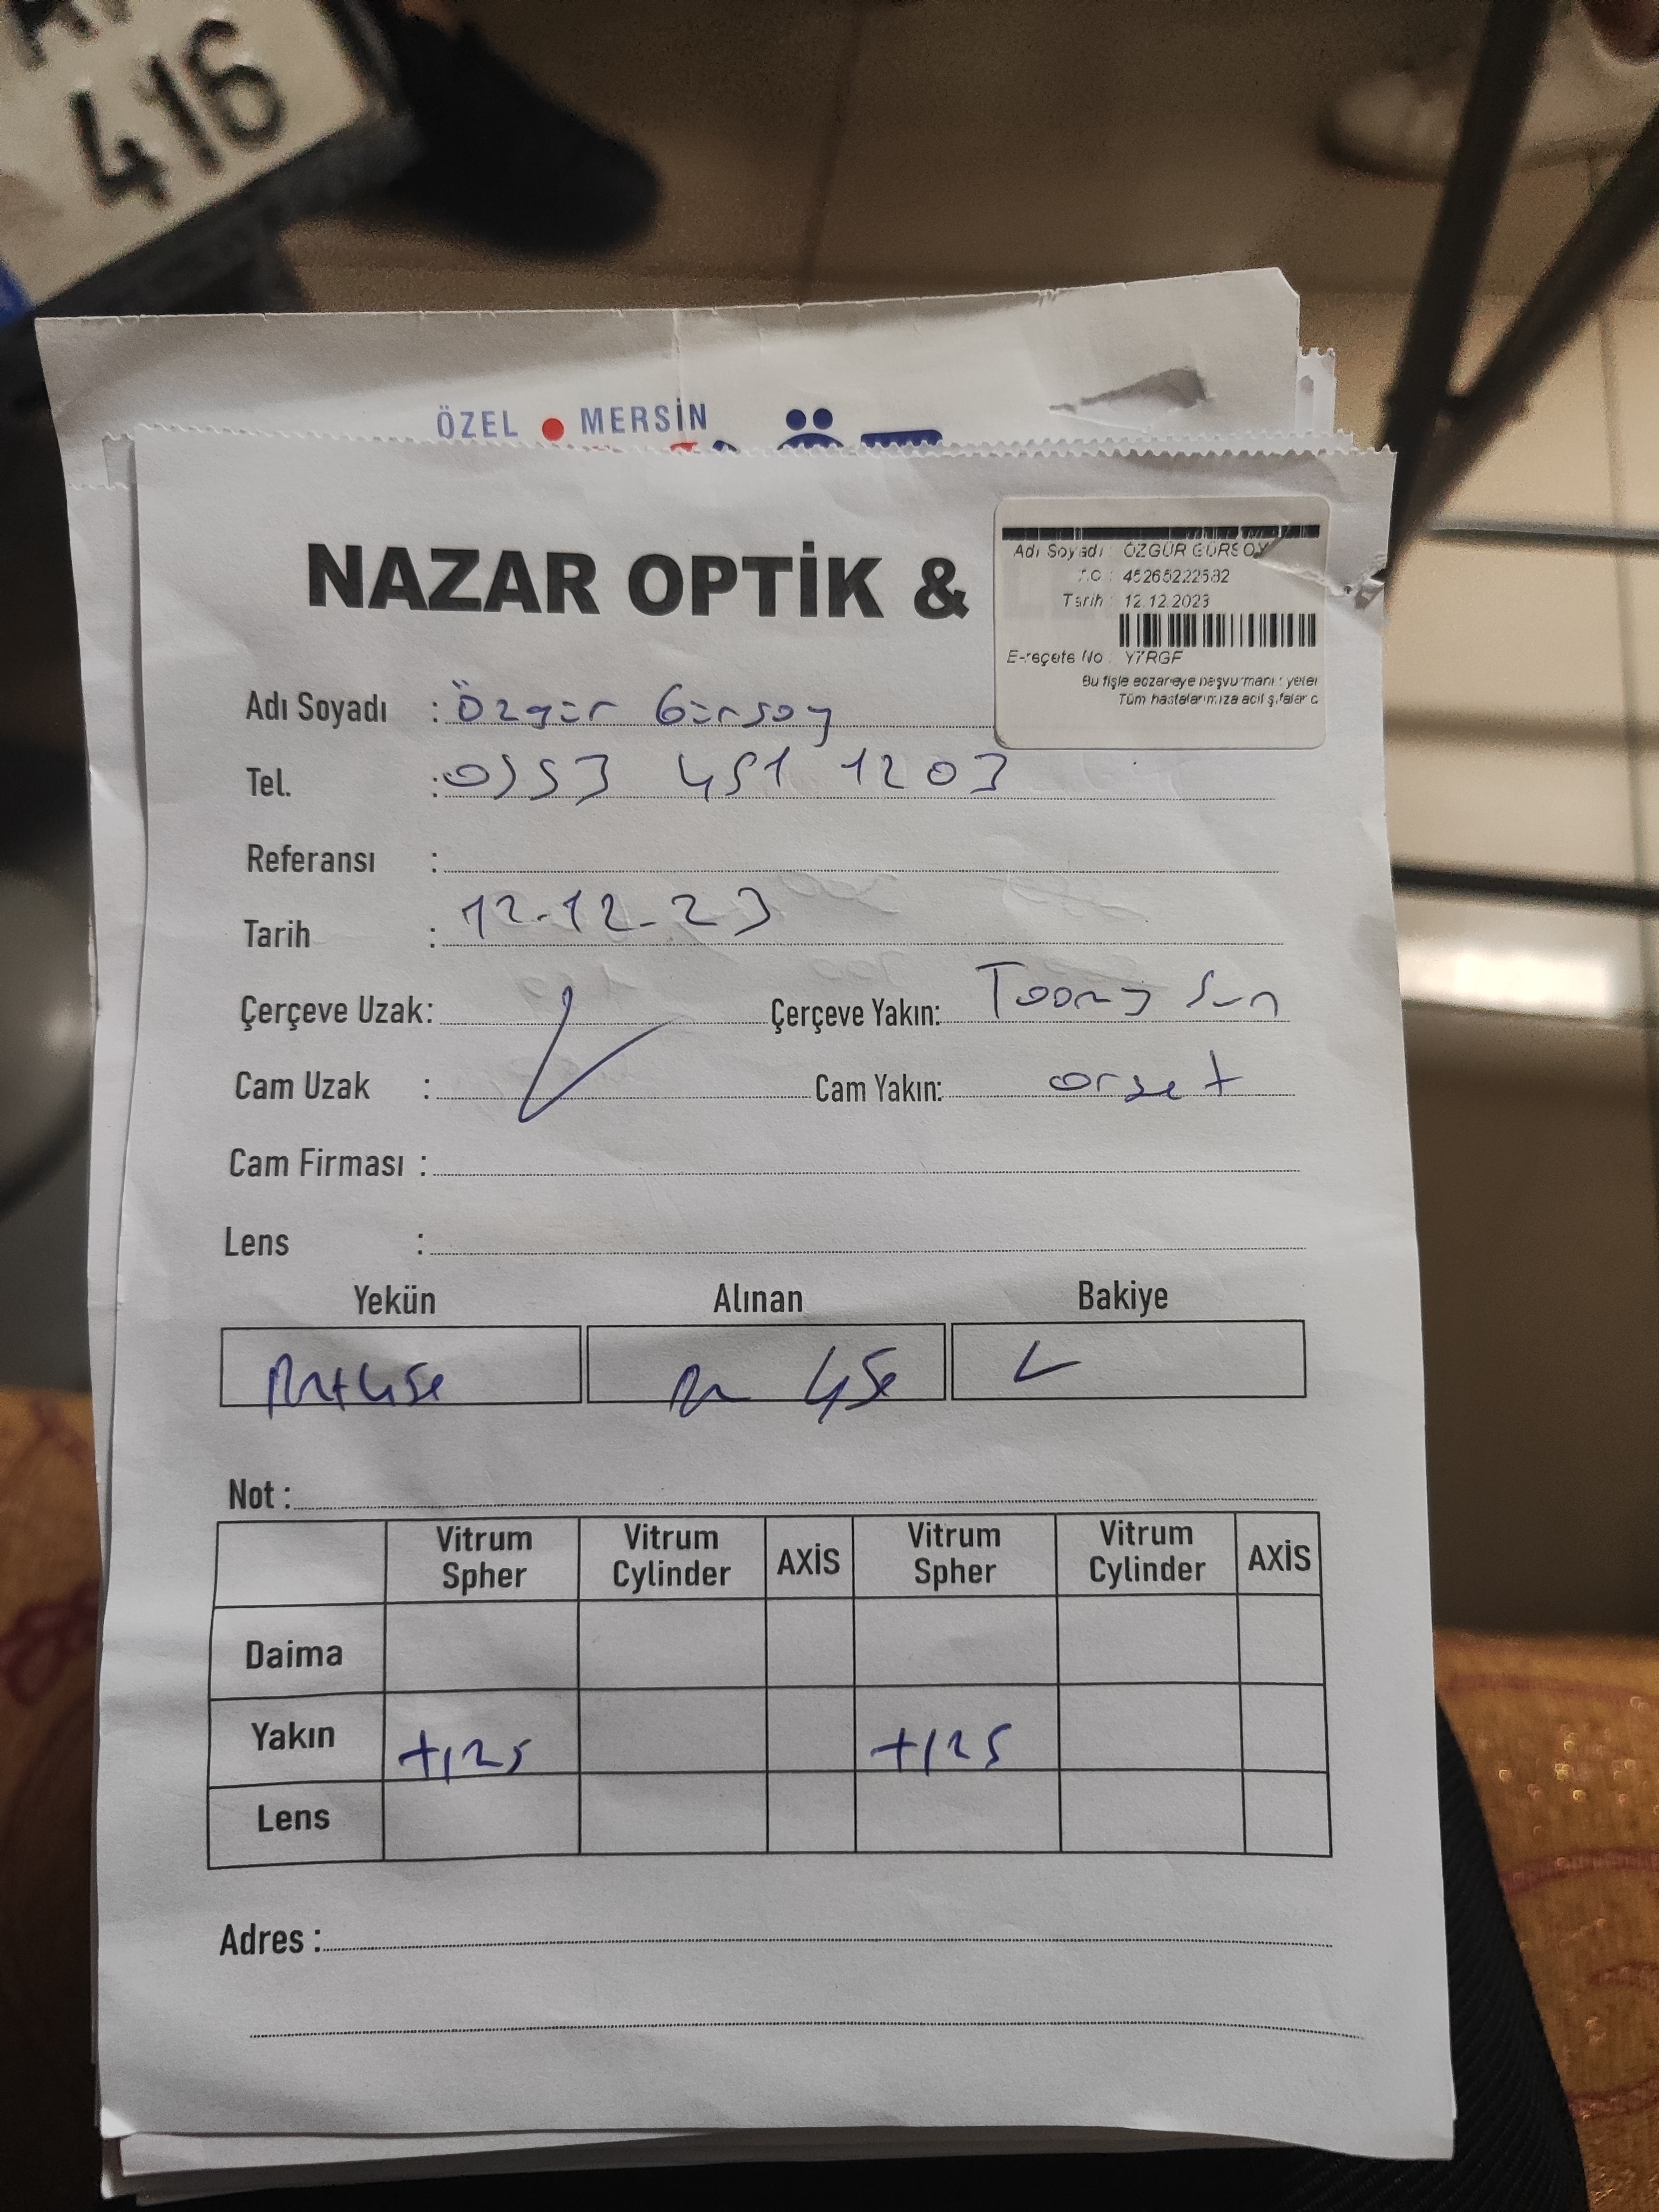 416
ÖZEL MERSİN
NAZAR OPTİK &
Adı Soyadı : ÖZGÜR GÜRSOY
T.C : 45265222582
Tarih : 12.12.2023
E-reçete No : Y7RGF
Bu fişle eczaneye başvurmanız yeter
Tüm hastalarımıza acil şifalar d
Adı Soyadı : Özgür Gürsoy
Tel. : 0553 451 1203
Referansı :
Tarih : 12-12-23
Çerçeve Uzak: Çerçeve Yakın: Toony Sun
Cam Uzak : Cam Yakın: orset
Cam Firması :
Lens :
Yekün Alınan Bakiye
Not :
Vitrum Spher Vitrum Cylinder AXİS Vitrum Spher Vitrum Cylinder AXİS
Daima
Yakın +125 +125
Lens
Adres :